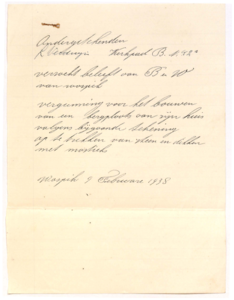 Ondergeteekenden
Kerkpad B.
verzoekt beleeft van B en W
van waspik
vergunning voor het bouwen
van een bergplaats van zijn huis
volgens bijgaande tekening
op te trekken van steen en dekken
met mastiek
Waspik 9 Februarie 1938